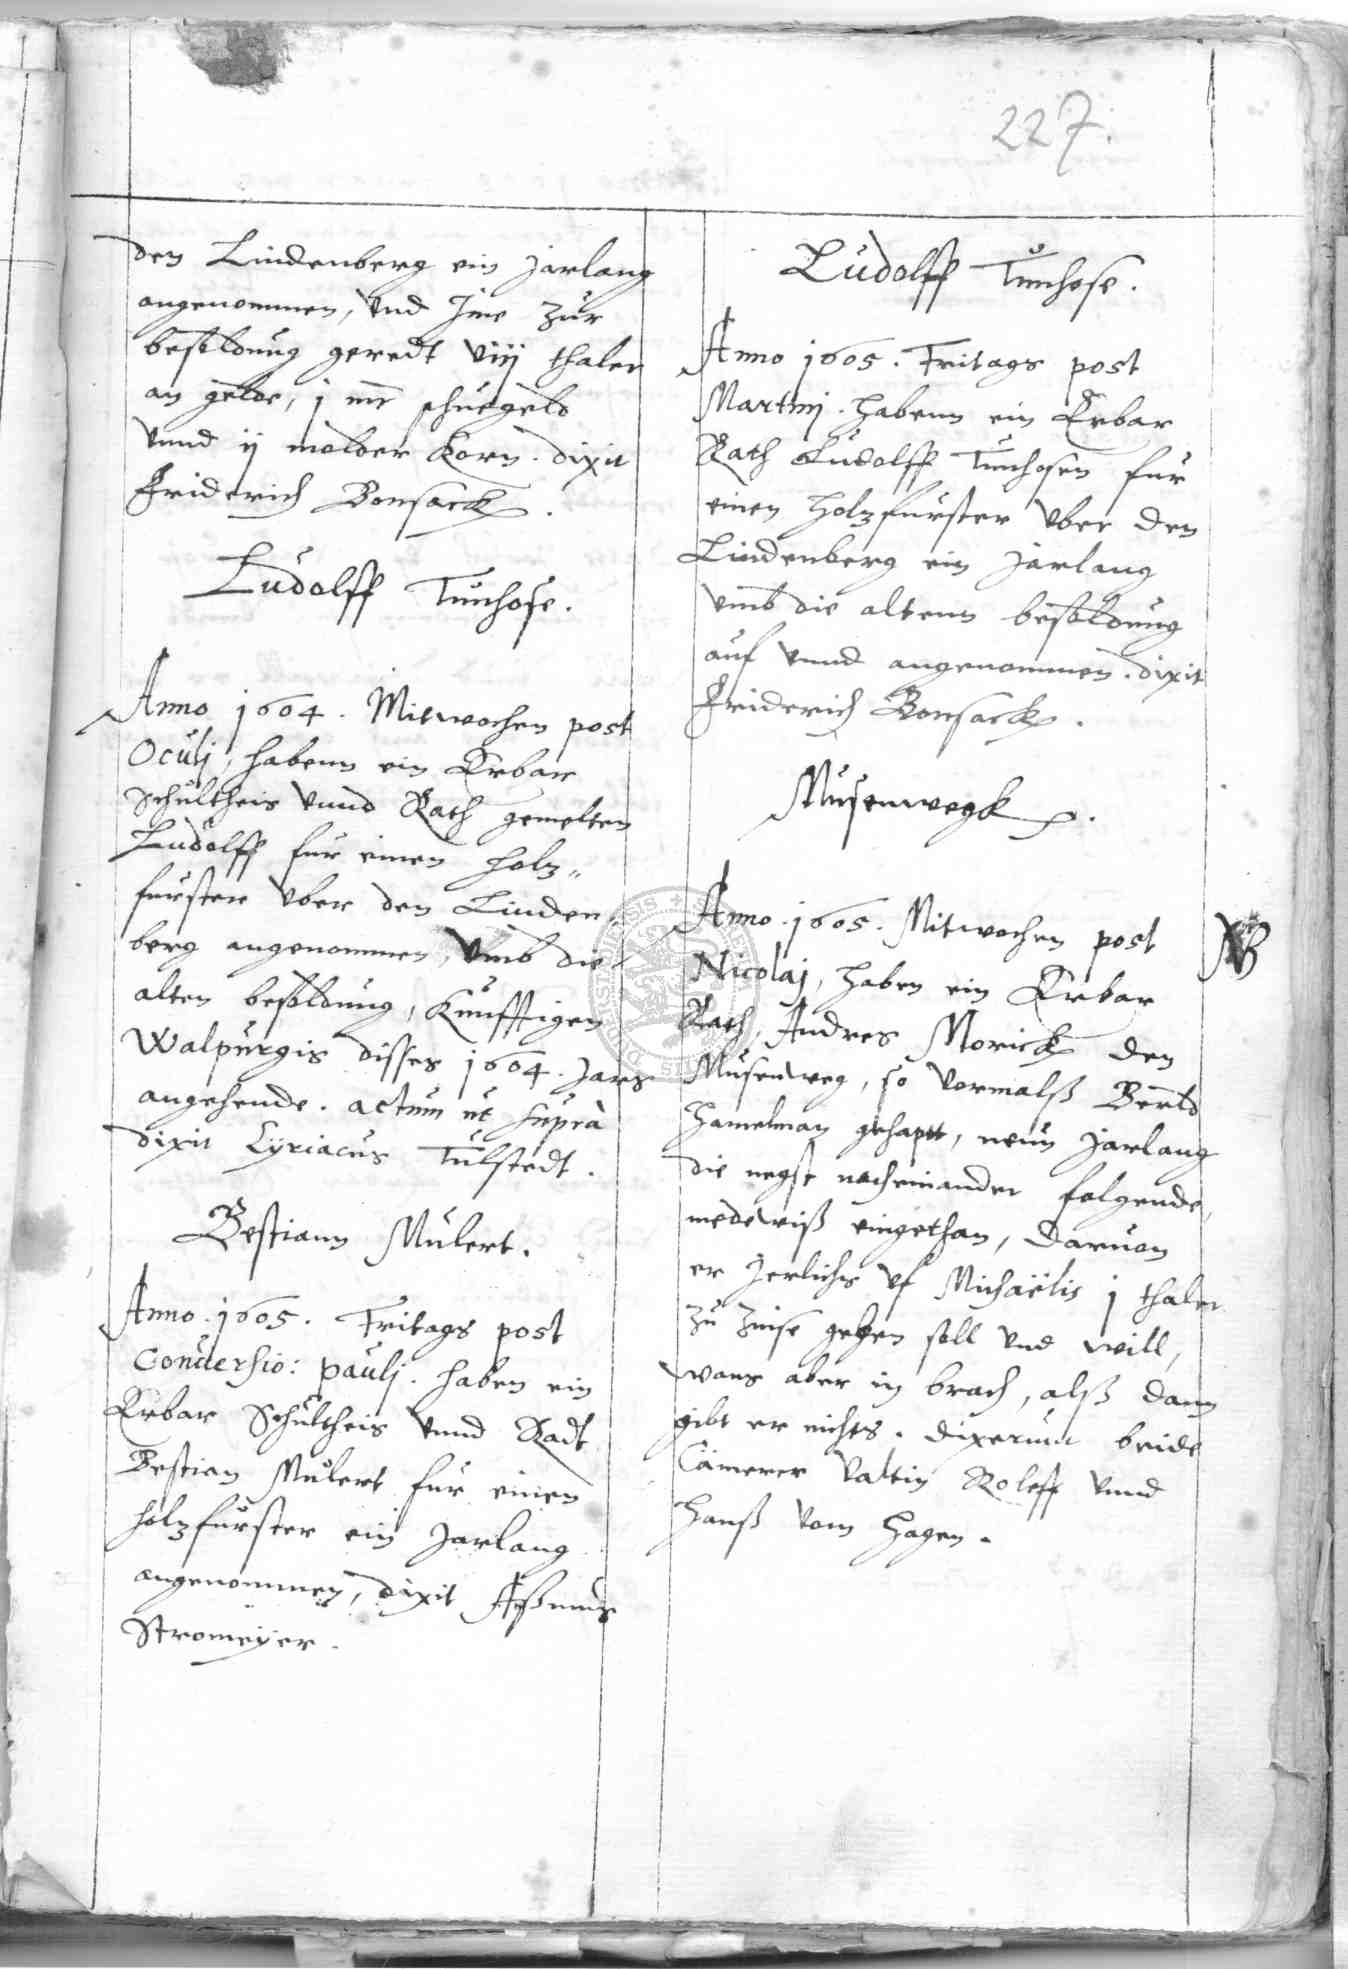 227.
den Lindenberg ein jarlang
angenommen, vnd Jme zur
besoldung geredt viij thaler
an gelde, j mr schuegeld
vnnd ij molder Korn. dixit
Friderich Bonsack.
Ludolff Tunhose.
Anno 1604. Mitwochen post
Oculj, habenn ein Erbar
Schultheis vnnd Rath gemelten
Ludolff fur einen holz„
furster vber den Linden„
berg angenommen, vmb die
alten besoldung, Kunfftigen
Walpurgis disses 1604. Jars
angehende. actum ut suprà
dixit Cyriacus Tulstedt.
Bestiann Mulert.
Anno. 1605. Fritags post
Conuersio: paulj. haben ein
Erbar Schultheis vnnd Radt
Bestian Mulert fur einen
holzfurster ein Jarlang
angenommen, dixit Aßmus
Stromeÿer.
Ludolff Tunhose.
Anno 1605. Fritags post
Martinj. habenn ein Erbar
Rath Ludolff Tunhosen fur
einen holzfurster vber den
Lindenberg ein jarlang
vmb die altenn besoldung
auf vnnd angenommen. dixit
Friderich Bonsack.
Musenwegk.
Anno. 1605. Mitwochen post
NB
Nicolaj, haben ein Erbar
Rath, Andres Morick den
Musenweg, so vormalß Berld
Hamelman gehaptt, neun jarlang
die negst nacheinander folgende,
medewiß eingethan, daruon
er jerlichs vf Michaëlis j thaler
zu Zinse geben soll vnd will,
wans aber in brach, alß dann
gibt er nichts. dixerunt beide
Cämerer Valtin Roleff vnnd
Hanß vom Hagen.